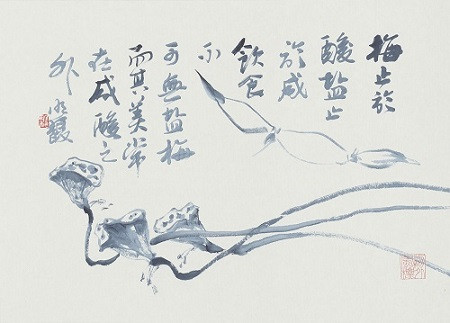 梅止於
酸盐止
於咸
飲食
不
可無盐梅
而其美常
在咸酸之
外